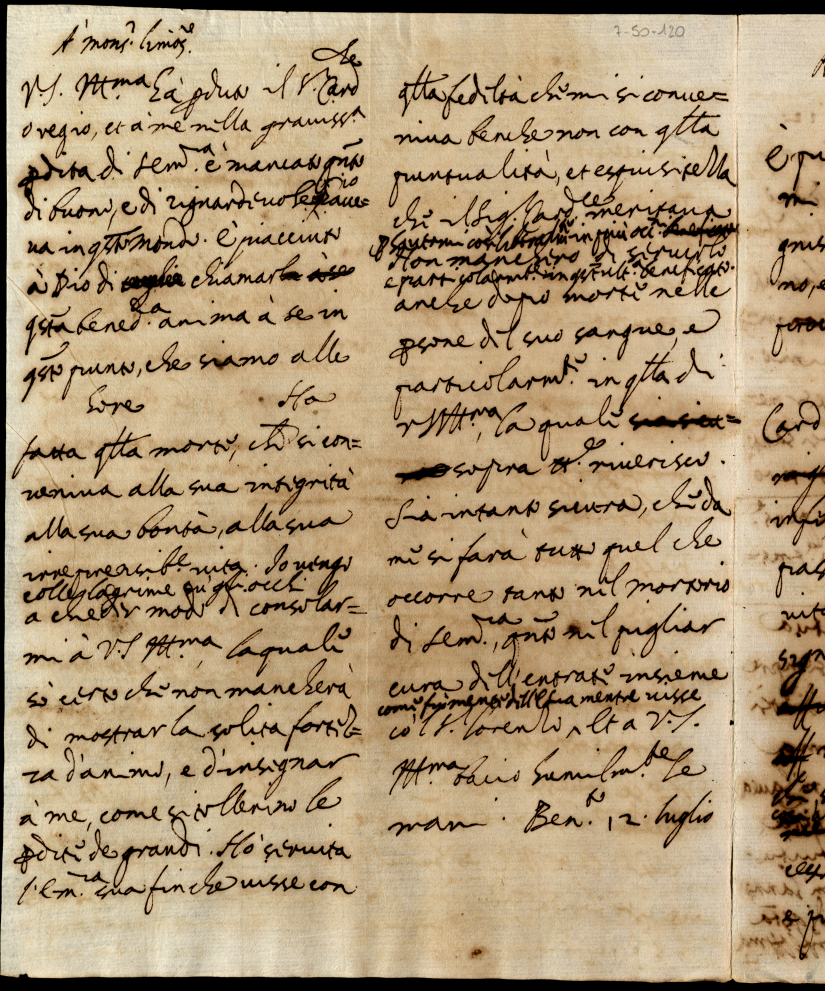 7-50-120
A' mons.r
V.S. Ill.ma hà pduto il S.r Card.le
Oregio, et à me nella graviss.a
pdita di S.em.a è mancato qnto
di buono, e di riguardevole io have=
va in qsto mondo. È piacciuto
à Dio di chiamar à se
qsta bened.a anima à se in
qsto punto, che siamo alle
hore Ha
fatta qlla morte, che si con=
veniva alla sua integrità
alla sua bontà, alla sua
irreprensib.e vita. Io vengo
colle lagrime sù gli occhi
a chieder modo di consolar=
mi à V.S. Ill.ma laquale
sò certo che non mancherà
di mostrar la solita fortez=
za d'animo, e d'insegnar
à me, come si tollerino le
pdite de grandi. Hò servita
S. Em.za sua finche visse con
qlla fedeltà che mi si conve=
niva benche non con qlla
puntualità, et esquisitezza
che il Sig. Card.le meritava
p havermi così in più occ.
Non mancherò di servirlo
e particolarm.te in qst' ult. beneficato.
anche dopo morte nelle
psone del suo sangue, e
particolarm.te in qlla di
V.S. Ill.ma, la quale
sopra tt.o riverisco.
Sia intanto sicura, che da
me si farà tutto quel che
occorre tanto nel mortorio
di S.em.za, qnto nel pigliar
cura dell'entrate insieme
come mentre visse
cò 'l S.r Lorenzo, Et a V.S.
Ill.ma bacio humilm.te le
mani. Ben.to 12. luglio
è pu
mi
gnis
no, e
Card
infi
pias
vit
sign